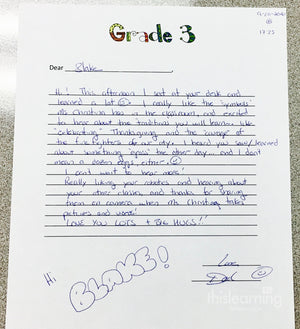 Grade 3
17:25
Dear Blake,
Hi! This afternoon I sat at your desk and
learned a lot I really like the symbols
Ms Christina has in the classroom, and excited
to hear about the traditions you will learn like
"celebrating" Thanksgiving and the courage of
the fire fighters of our city. I heard you saw/learned
about something "eggs" the other day and I don't
mean a dozen eggs either.
I can't wait to hear more!
Really liking your robotics and hearing about
your other classes and thanks for sharing
them on camera when Ms Christina takes
pictures and more!
LOVE YOU LOTS + BIG HUGS!!
Love,
Dad
Hi
BLAKE!
thislearning